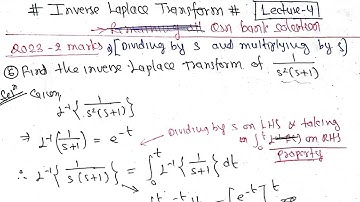 # Inverse Laplace Transform # Lecture-4
→ Remaining all Qsn bank solution
2023-2 marks [Dividing by s and multiplying by s]
⑤ Find the inverse Laplace transform of 1/s²(s+1)
Solⁿ Given,
L⁻¹{1/s²(s+1)}
⇒ L⁻¹(1/s+1) = e⁻ᵗ
→ Dividing by s on LHS & taking
∫₀ᵗ on RHS
property
∴ L⁻¹{1/s(s+1)} = ∫₀ᵗ L⁻¹{1/s+1} dt